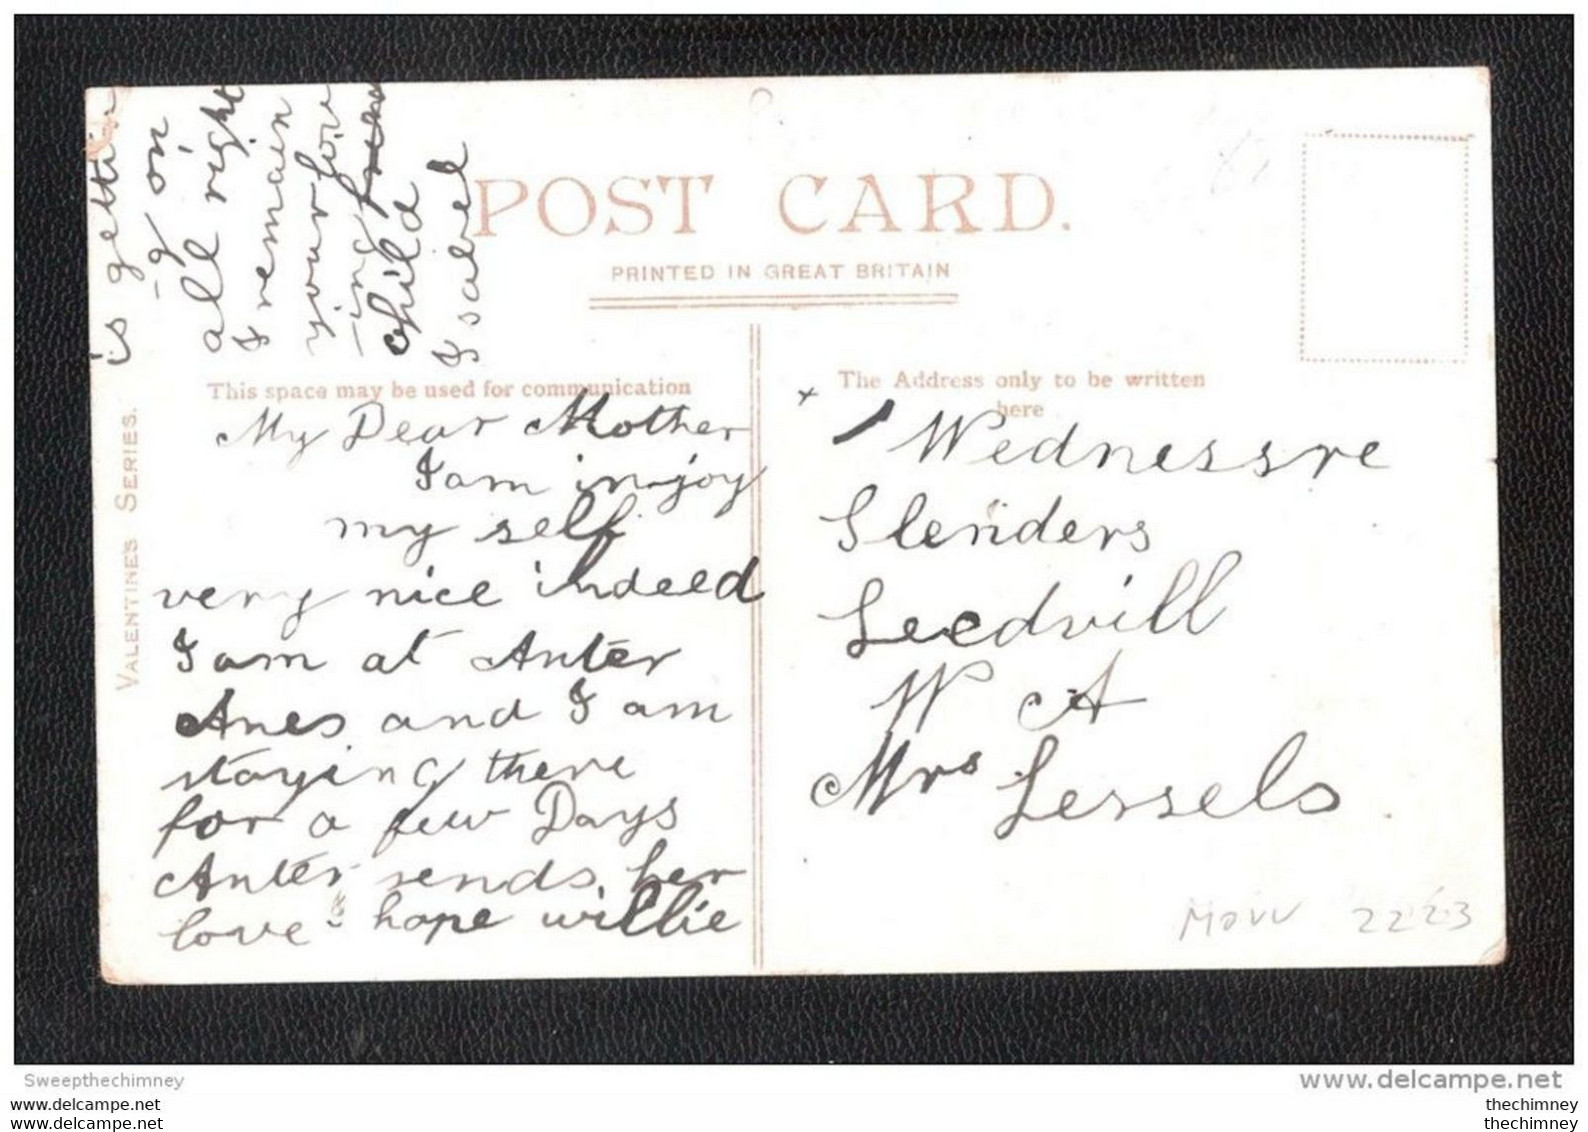 POST CARD.
PRINTED IN GREAT BRITAIN
VALENTINE'S SERIES.
This space may be used for communication
My Dear Mother
I am in joy
my self
very nice indeed
I am at Anter
Anes and I am
staying there
for a few Days
Anter sends her
love I hope willie
is gettin
-g on
all right
I remain
your lov
-ing
child
Isabel
The Address only to be written
here
Wednessre
Slenders
Leedvill
W A
Mrs Lessels
2223
Sweepthechimney
www.delcampe.net
www.delcampe.net
www.delcampe.net
thechimney
thechimney